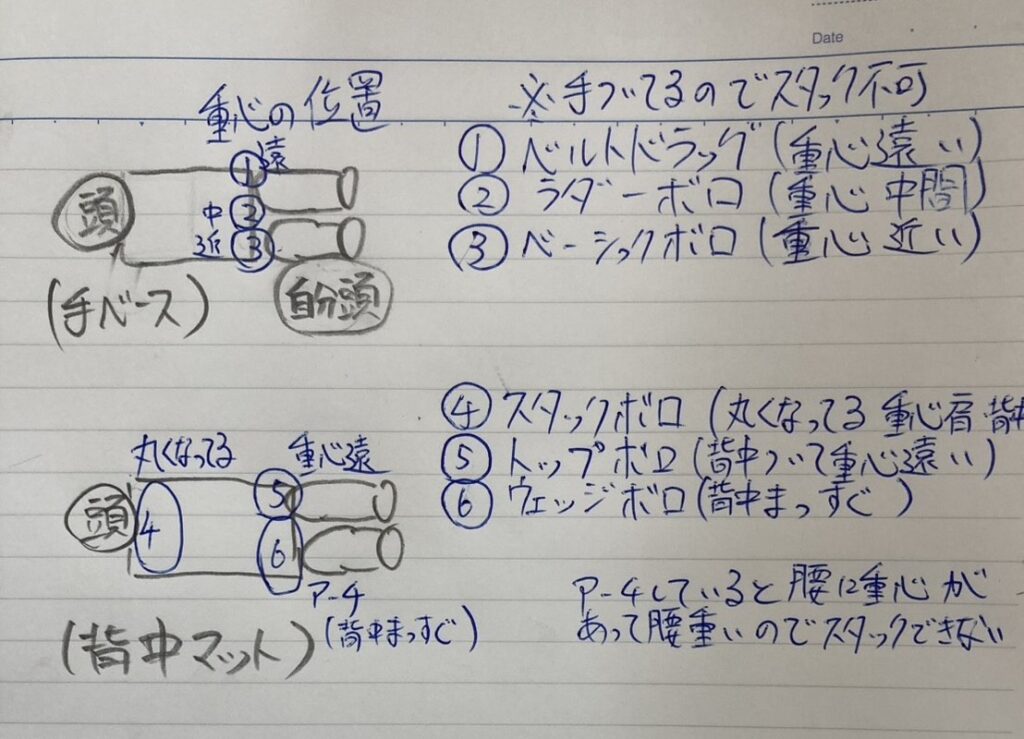 Date
重心の位置
※手ついてるのでスタック不可
頭
① 遠
中 ②
近 ③
自分頭
(手ベース)
① ベルトドラッグ (重心遠い)
② ラダーボロ (重心 中間)
③ ベーシックボロ (重心 近い)
④ スタックボロ (丸くなってる 重心肩・背中
⑤ トップボロ (背中ついて重心遠い)
⑥ ウェッジボロ (背中まっすぐ)
丸くなってる 重心遠
頭
4
⑤
6
アーチ
(背中まっすぐ)
(背中マット)
アーチしていると腰に重心が
あって腰重いのでスタックできない